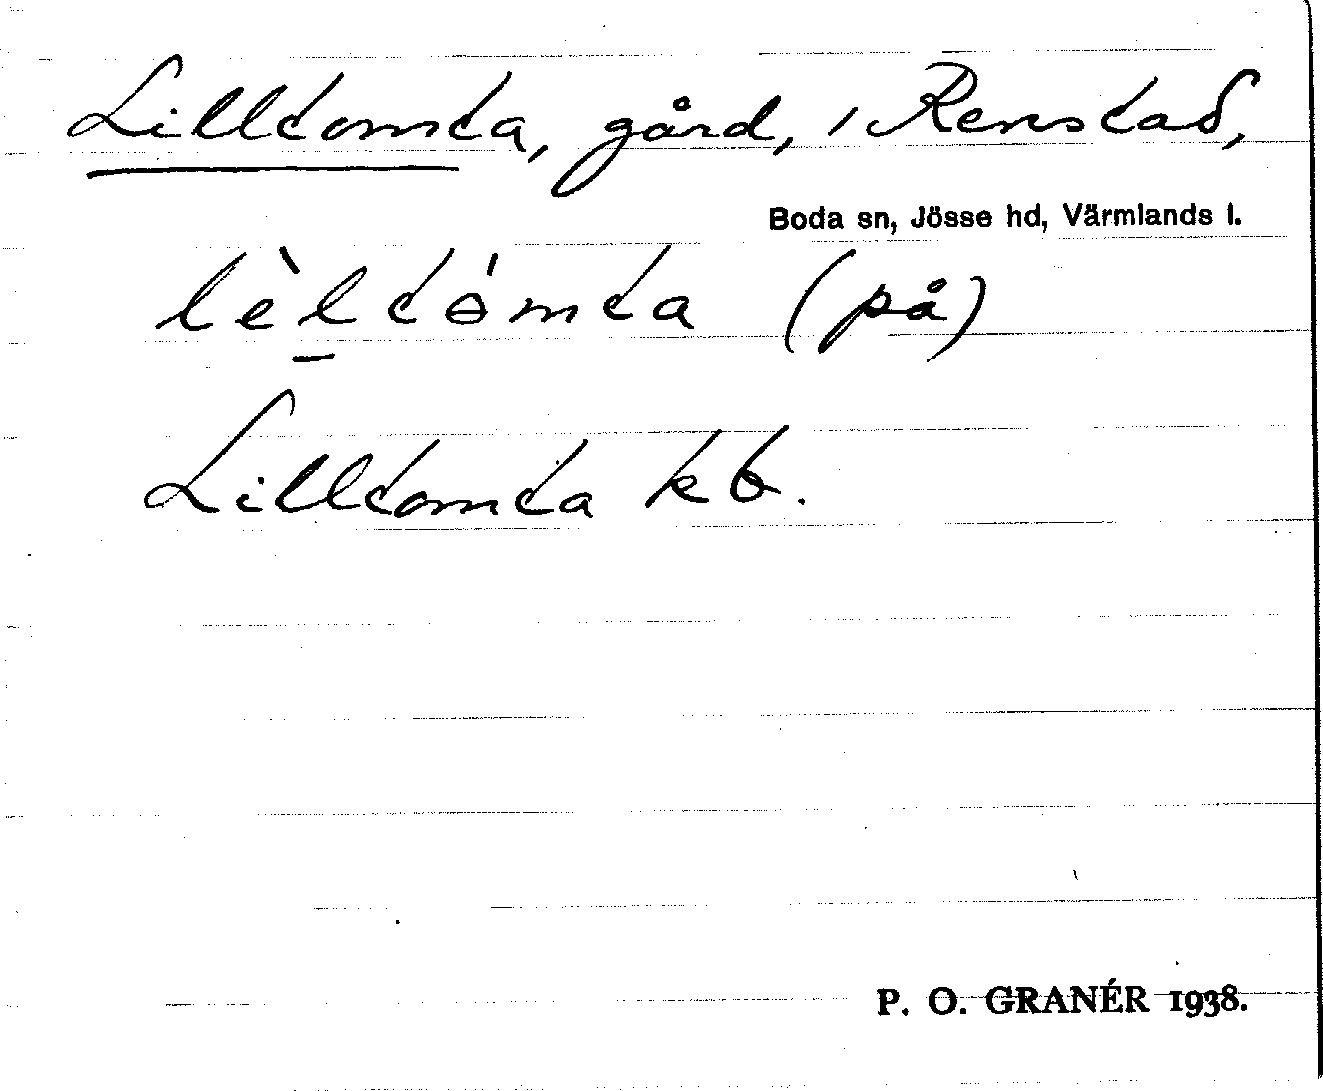 Lilltomta, gård, i Renstad,
Boda sn, Jösse hd, Värmlands l.
lèltómta (på)
Lilltomta kb.
P. O. GRANÉR 1938.